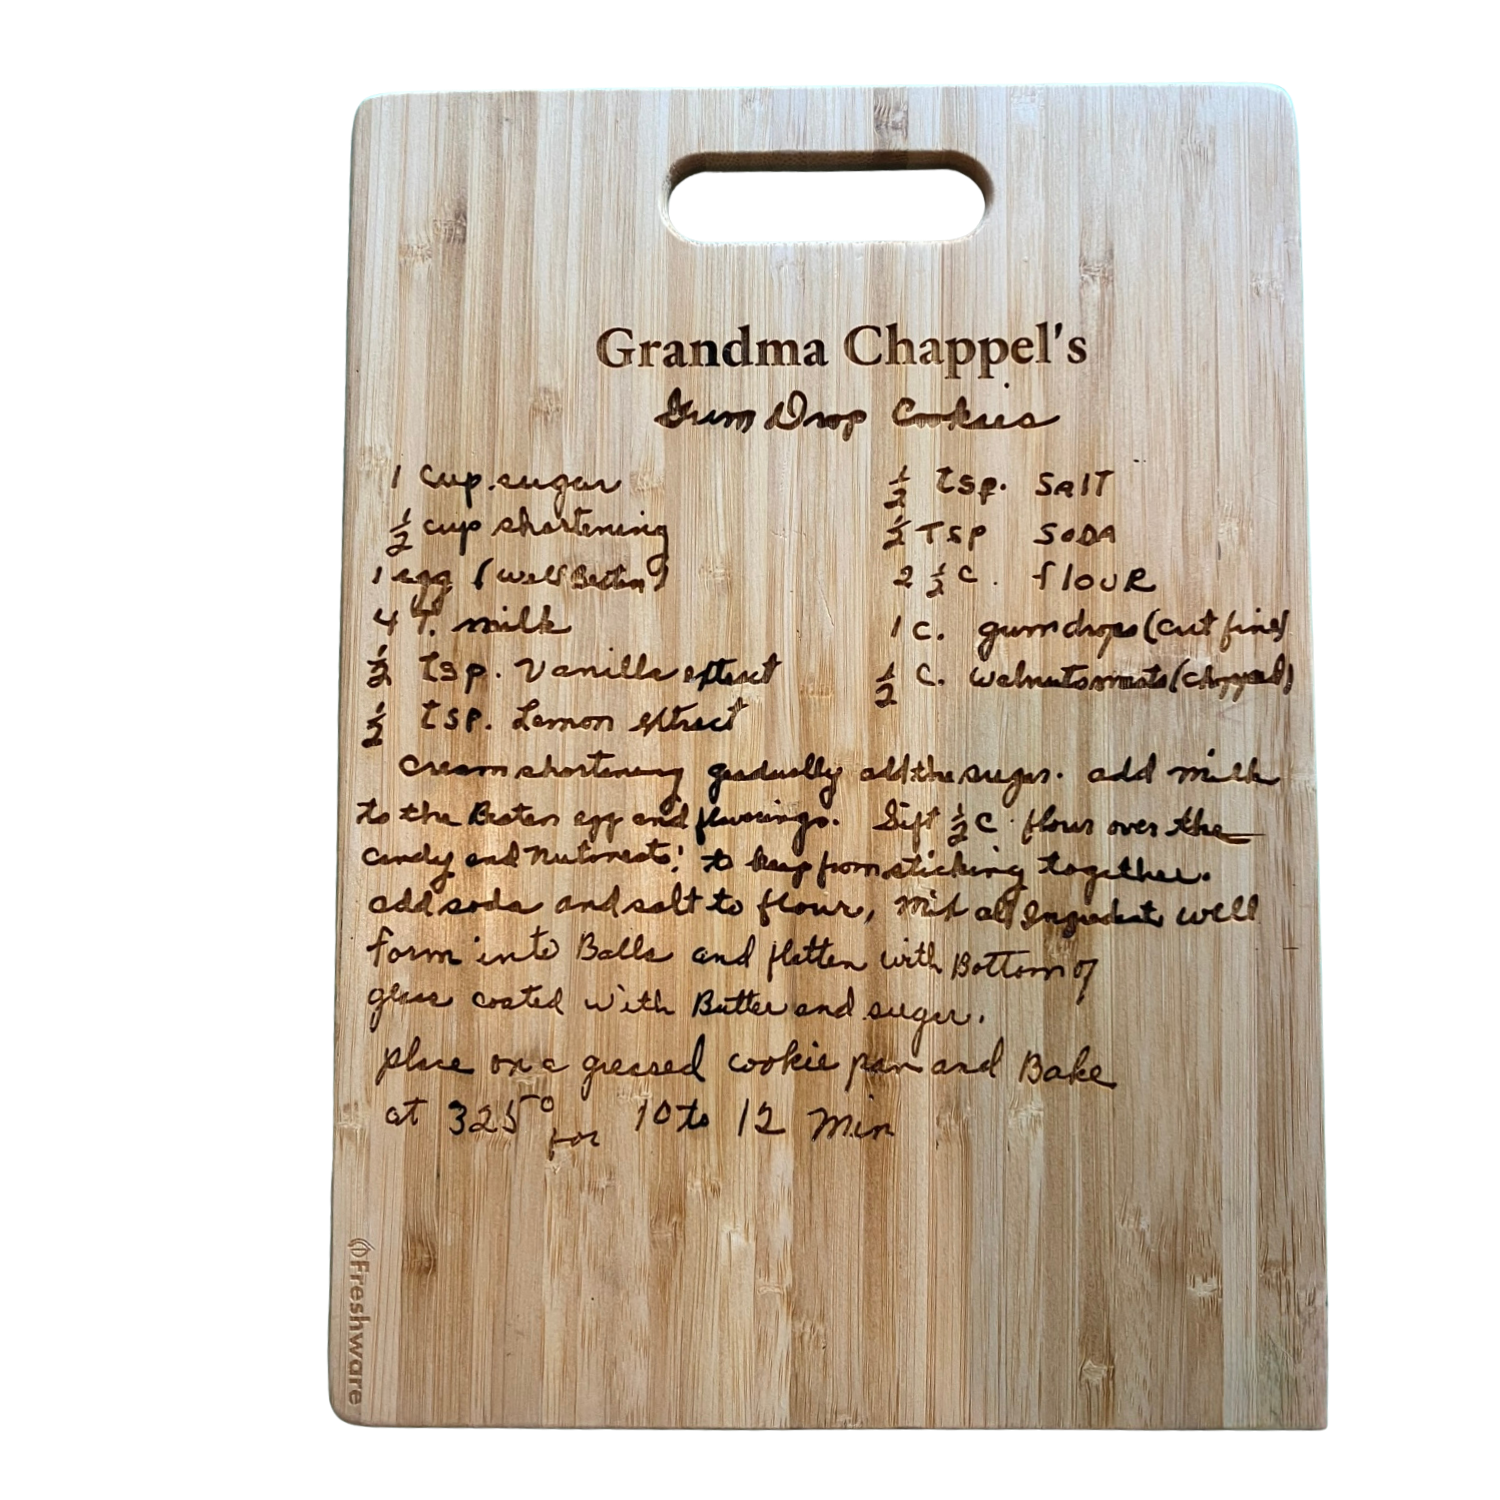 Grandma Chappel's
Gum Drop Cookies
1 cup sugar
1/2 cup shortening
1 egg (well Beaten)
4 T. milk
1/2 tsp. Vanilla extract
1/2 tsp. Lemon extract
1/2 tsp. SalT
1/2 TSP SODA
2 1/2 c. flouR
1 c. gumdrops (cut fine)
1/2 c. walnutsmeats (chopped)
cream shortening gradually add the sugar. add milk
to the Beaten egg and flavorings. Sift 1/2 c flour over the
candy and Nutmeats! to keep from sticking together.
add soda and salt to flour, Mix all Ingredients well
form into Balls and flatten with Bottom of
glass coated with Butter and sugar.
place on a greased cookie pan and Bake
at 325° for 10 to 12 Min
Freshware